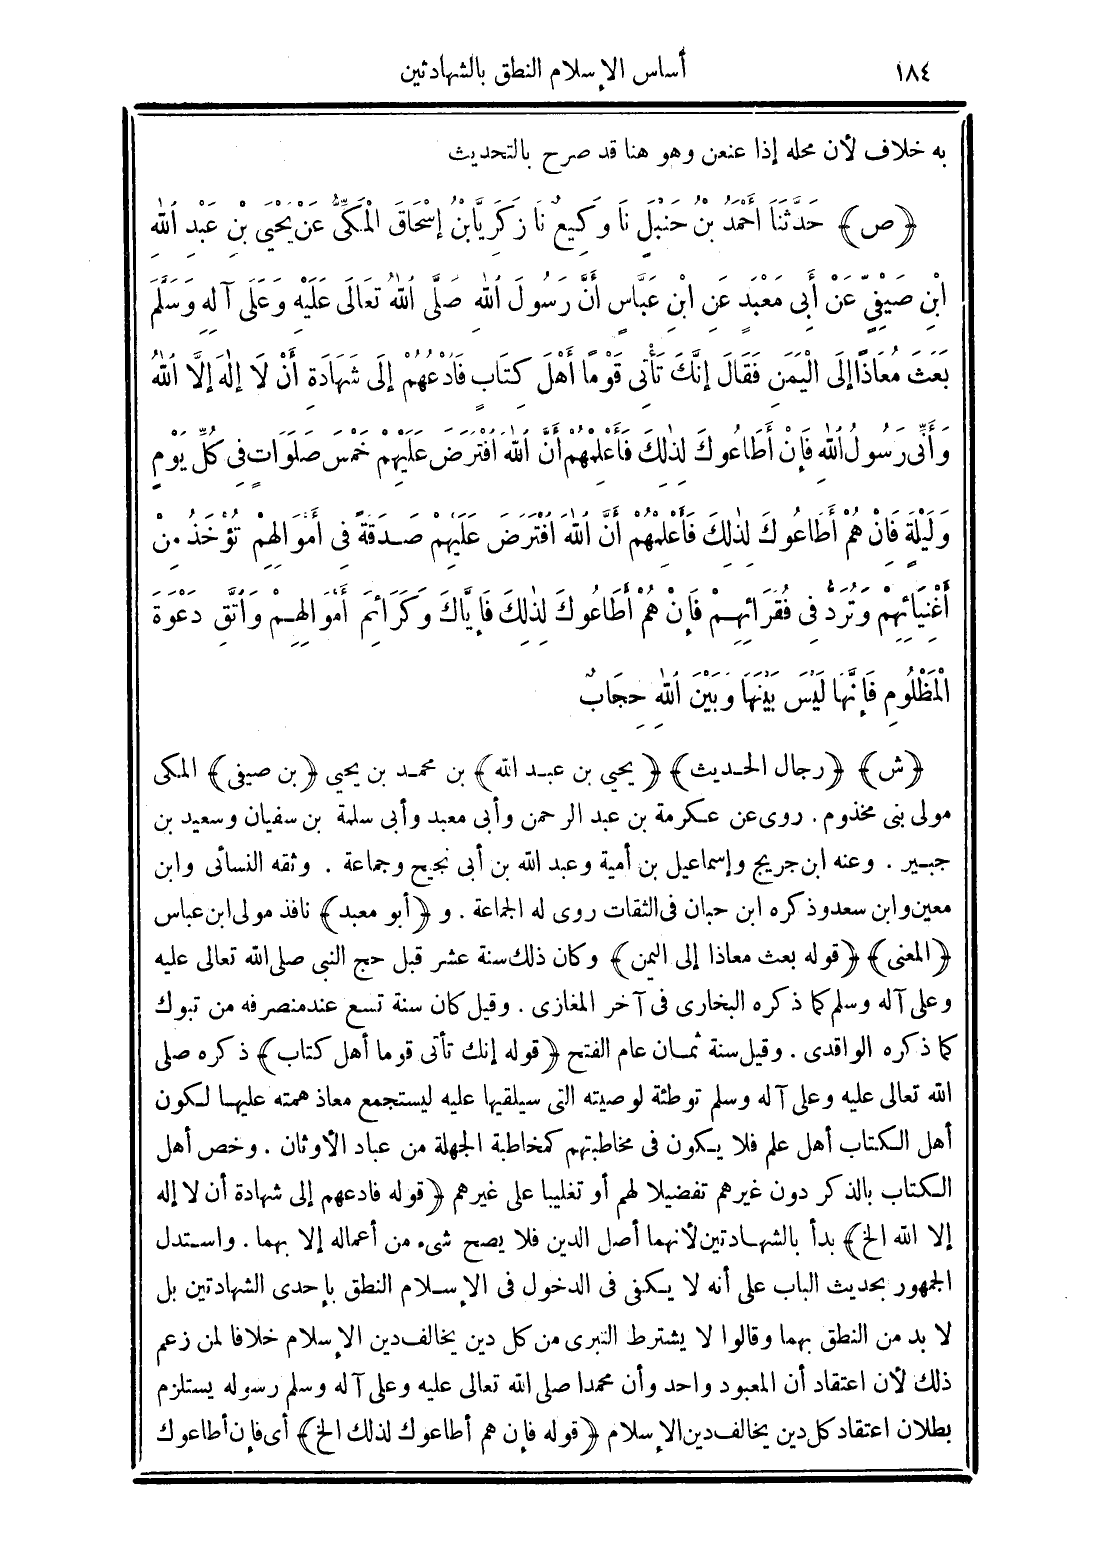 ١٨٤ أساس الإسلام النطق بالشهادتين
به خلاف لأن محله إذا عنعن وهو هنا قد صرح بالتحديث
﴿ص﴾ حَدَّثَنَا أَحْمَدُ بْنُ حَنْبَلٍ نَا وَكِيعٌ نَا زَكَرِيَّا بْنُ إِسْحَاقَ الْمَكِّيُّ عَنْ يَحْيَى بْنِ عَبْدِ اللهِ
ابْنِ صَيْفِيٍّ عَنْ أَبِى مَعْبَدٍ عَنِ ابْنِ عَبَّاسٍ أَنَّ رَسُولَ اللهِ صَلَّى اللهُ تَعَالَى عَلَيْهِ وَعَلَى آلِهِ وَسَلَّمَ
بَعَثَ مُعَاذًا إِلَى الْيَمَنِ فَقَالَ إِنَّكَ تَأْتِى قَوْمًا أَهْلَ كِتَابٍ فَادْعُهُمْ إِلَى شَهَادَةِ أَنْ لَا إِلٰهَ إِلَّا اللهُ
وَأَنِّى رَسُولُ اللهِ فَإِنْ أَطَاعُوكَ لِذٰلِكَ فَأَعْلِمْهُمْ أَنَّ اللهَ افْتَرَضَ عَلَيْهِمْ خَمْسَ صَلَوَاتٍ فِى كُلِّ يَوْمٍ
وَلَيْلَةٍ فَإِنْ هُمْ أَطَاعُوكَ لِذٰلِكَ فَأَعْلِمْهُمْ أَنَّ اللهَ افْتَرَضَ عَلَيْهِمْ صَدَقَةً فِى أَمْوَالِهِمْ تُؤْخَذُ مِنْ
أَغْنِيَائِهِمْ وَتُرَدُّ فِى فُقَرَائِهِمْ فَإِنْ هُمْ أَطَاعُوكَ لِذٰلِكَ فَإِيَّاكَ وَكَرَائِمَ أَمْوَالِهِمْ وَاتَّقِ دَعْوَةَ
الْمَظْلُومِ فَإِنَّهَا لَيْسَ بَيْنَهَا وَبَيْنَ اللهِ حِجَابٌ
﴿ش﴾ ﴿رجال الحديث﴾ ﴿يحيى بن عبد الله﴾ بن محمد بن يحيى ﴿بن صيفى﴾ المكى
مولى بنى مخذوم. روى عن عكرمة بن عبد الرحمن وأبى معبد وأبى سلمة بن سفيان وسعيد بن
جبير. وعنه ابن جريج وإسماعيل بن أمية وعبد الله بن أبى نجيح وجماعة. وثقه النسائى وابن
معين وابن سعد وذكره ابن حبان فى الثقات روى له الجماعة. و ﴿أبو معبد﴾ نافذ مولى ابن عباس
﴿المعنى﴾ ﴿قوله بعث معاذا إلى اليمن﴾ وكان ذلك سنة عشر قبل حج النبى صلى الله تعالى عليه
وعلى آله وسلم كما ذكره البخارى فى آخر المغازى. وقيل كان سنة تسع عند منصرفه من تبوك
كما ذكره الواقدى. وقيل سنة ثمان عام الفتح ﴿قوله إنك تأتى قوما أهل كتاب﴾ ذكره صلى
الله تعالى عليه وعلى آله وسلم توطئة لوصيته التى سيلقيها عليه ليستجمع معاذ همته عليها لكون
أهل الكتاب أهل علم فلا يكون فى مخاطبتهم كمخاطبة الجهلة من عباد الأوثان. وخص أهل
الكتاب بالذكر دون غيرهم تفضيلا لهم أو تغليبا على غيرهم ﴿قوله فادعهم إلى شهادة أن لا إله
إلا الله الخ﴾ بدأ بالشهادتين لأنهما أصل الدين فلا يصح شىء من أعماله إلا بهما. واستدل
الجمهور بحديث الباب على أنه لا يكفى فى الدخول فى الإسلام النطق بإحدى الشهادتين بل
لا بد من النطق بهما وقالوا لا يشترط التبرى من كل دين يخالف دين الإسلام خلافا لمن زعم
ذلك لأن اعتقاد أن المعبود واحد وأن محمدا صلى الله تعالى عليه وعلى آله وسلم رسوله يستلزم
بطلان اعتقاد كل دين يخالف دين الإسلام ﴿قوله فإن هم أطاعوك لذلك الخ﴾ أى فإن أطاعوك